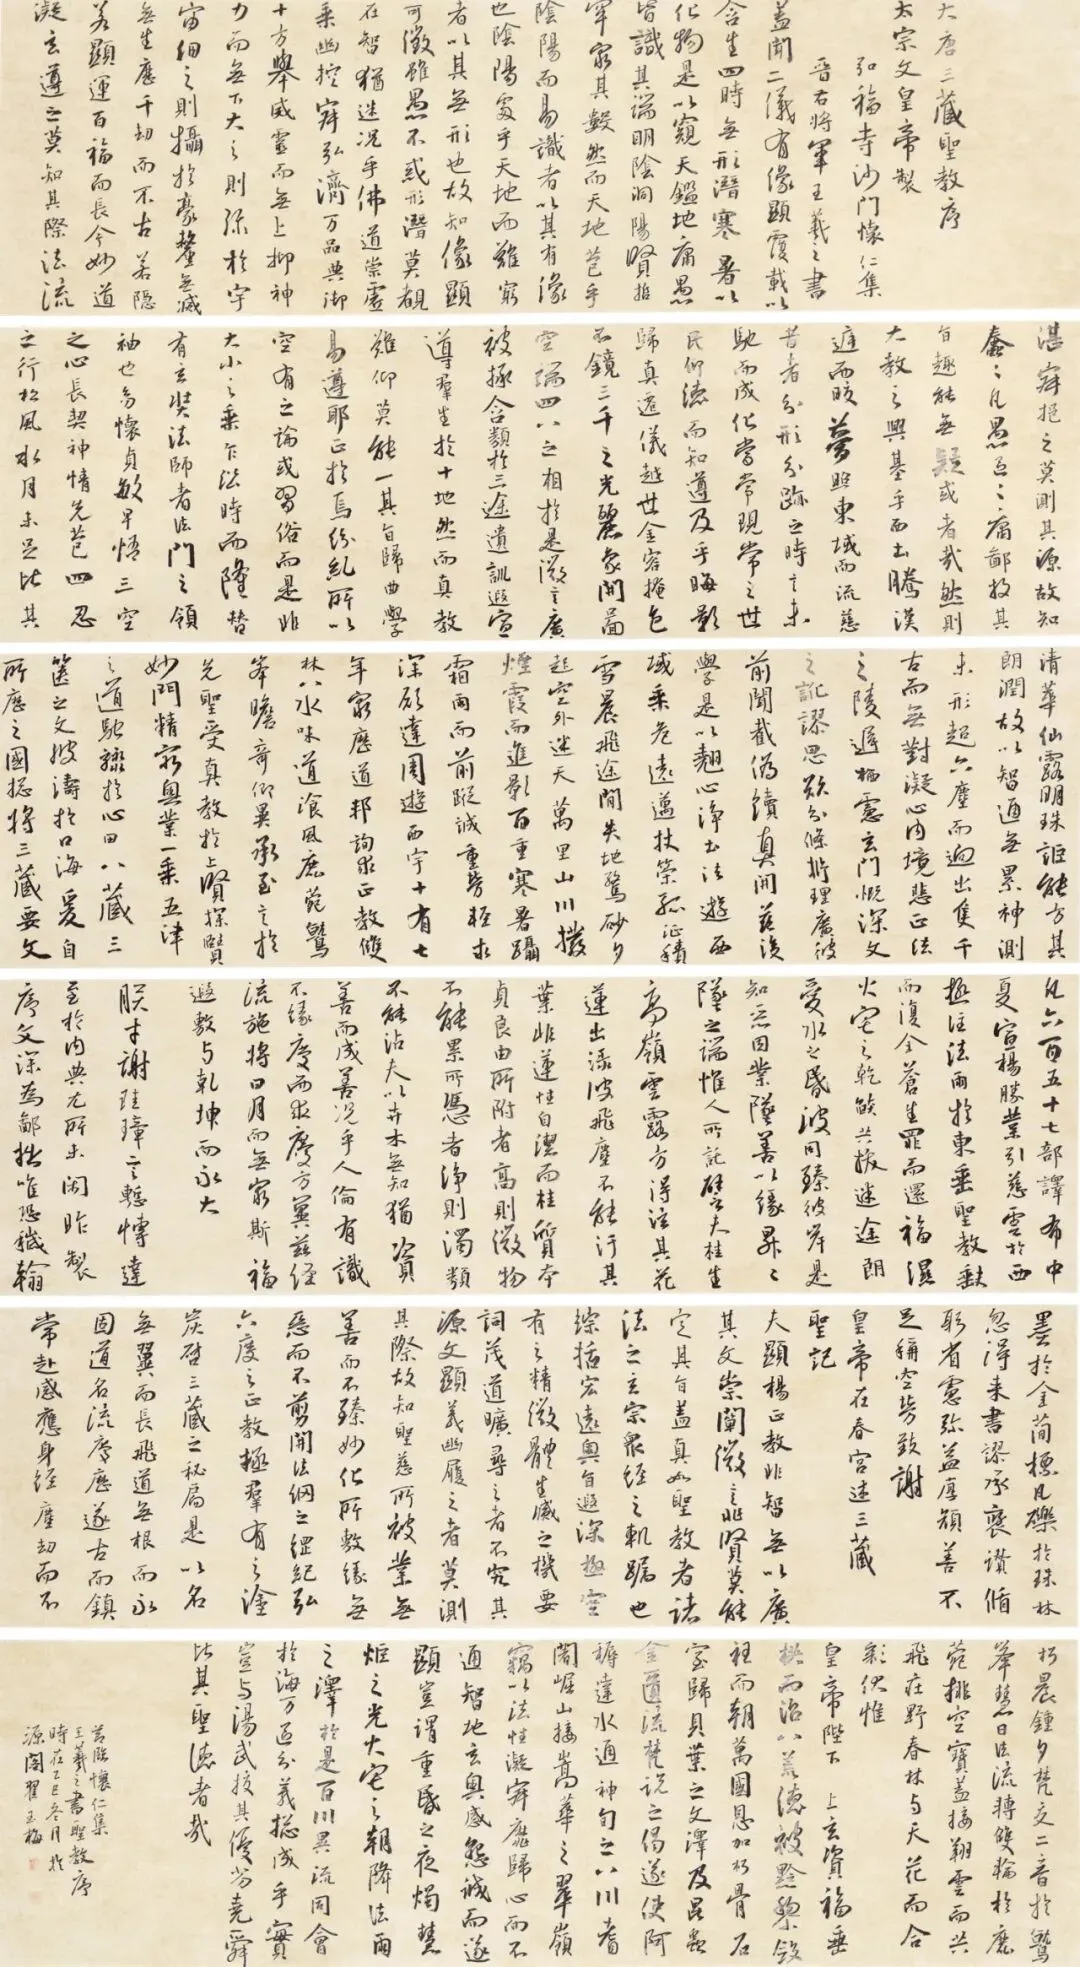 大唐三藏聖教序
太宗文皇帝製
弘福寺沙門懷仁集
晉右將軍王羲之書
蓋聞二儀有像顯覆載以
含生四時無形潛寒暑以
化物是以窺天鑑地庸愚
皆識其端明陰洞陽賢哲
罕窮其數然而天地苞乎
陰陽而易識者以其有像
也陰陽處乎天地而難窮
者以其無形也故知像顯
可徵雖愚不惑形潛莫覩
在智猶迷況乎佛道崇虛
乘幽控寂弘濟万品典御
十方舉威靈而無上抑神
力而無下大之則彌於宇
宙細之則攝於豪釐無滅
無生歷千劫而不古若隱
若顯運百福而長今妙道
凝玄遵之莫知其際法流
湛寂挹之莫測其源故知
蠢蠢凡愚區區庸鄙投其
旨趣能無疑惑者哉然則
大教之興基乎西土騰漢
庭而皎夢照東域而流慈
昔者分形分跡之時言未
馳而成化當常現常之世
民仰德而知遵及乎晦影
歸真遷儀越世金容掩色
不鏡三千之光麗象開圖
空端四八之相於是微言廣
被拯含類於三途遺訓遐宣
導羣生於十地然而真教
難仰莫能一其旨歸曲學
易遵耶正於焉紛糺所以
空有之論或習俗而是非
大小之乘乍沿時而隆替
有玄奘法師者法門之領
袖也幼懷貞敏早悟三空
之心長契神情先苞四忍
之行松風水月未足比其
清華仙露明珠詎能方其
朗潤故以智通無累神測
未形超六塵而迥出隻千
古而無對凝心內境悲正法
之陵遲栖慮玄門慨深文
之訛謬思欲分條析理廣彼
前聞截偽續真開茲後
學是以翹心淨土法遊西
域乘危遠邁杖策孤征積
雪晨飛途閒失地驚砂夕
起空外迷天萬里山川撥
煙霞而進影百重寒暑躡
霜雨而前蹤誠重勞輕求
深願達周遊西宇十有七
年窮歷道邦詢求正教雙
林八水味道飡風鹿菀鷲
峯瞻奇仰異承至言於
先聖受真教於上賢探賾
妙門精窮奧業一乘五律
之道馳驟於心田八藏三
篋之文波濤於口海爰自
所歷之國總將三藏要文
凡六百五十七部譯布中
夏宣揚勝業引慈雲於西
極注法雨於東垂聖教缺
而復全蒼生罪而還福濕
火宅之乾燄共拔迷途朗
愛水之昏波同臻彼岸是
知惡因業墜善以緣昇昇
墜之端惟人所託譬夫桂生
高嶺雲露方得泫其花
蓮出淥波飛塵不能汙其
葉非蓮性自潔而桂質本
貞良由所附者高則微物
不能累所憑者淨則濁類
不能沾夫以卉木無知猶資
善而成善況乎人倫有識
不緣慶而求慶方冀茲經
流施將日月而無窮斯福
遐敷與乾坤而永大
朕才謝珪璋言慙博達
至於內典尤所未閑昨製
序文深為鄙拙唯恐穢翰
墨於金簡標瓦礫於珠林
忽得來書謬承褒讚循
躬省慮彌益厚顏善不
足稱空勞致謝
皇帝在春宮述三藏
聖記
夫顯揚正教非智無以廣
其文崇闡微言非賢莫能
定其旨蓋真如聖教者諸
法之玄宗眾經之軌躅也
綜括宏遠奧旨遐深極空
有之精微體生滅之機要
詞茂道曠尋之者不究其
源文顯義幽履之者莫測
其際故知聖慈所被業無
善而不臻妙化所敷緣無
惡而不剪開法網之綱紀弘
六度之正教拯羣有之塗
炭啟三藏之秘扃是以名
無翼而長飛道無根而永
固道名流慶歷遂古而鎮
常赴感應身經塵劫而不
朽晨鍾夕梵交二音於鷲
峯慧日法流轉雙輪於鹿
菀排空寶蓋接翔雲而共
飛莊野春林與天花而合
彩伏惟
皇帝陛下 上玄資福垂
拱而治八荒德被黔黎斂
衽而朝萬國恩加朽骨石
室歸貝葉之文澤及昆蟲
金匱流梵說之偈遂使阿
耨達水通神甸之八川耆
闍崛山接嵩華之翠嶺
竊以法性凝寂靡歸心而不
通智地玄奧感懇誠而遂
顯豈謂重昏之夜燭慧
炬之光火宅之朝降法雨
之澤於是百川異流同會
於海万區分義總成乎實
豈與湯武校其優劣堯舜
比其聖德者哉
臨懷仁集
王羲之書聖教序
時在乙巳冬月於
源閣翟玉梅